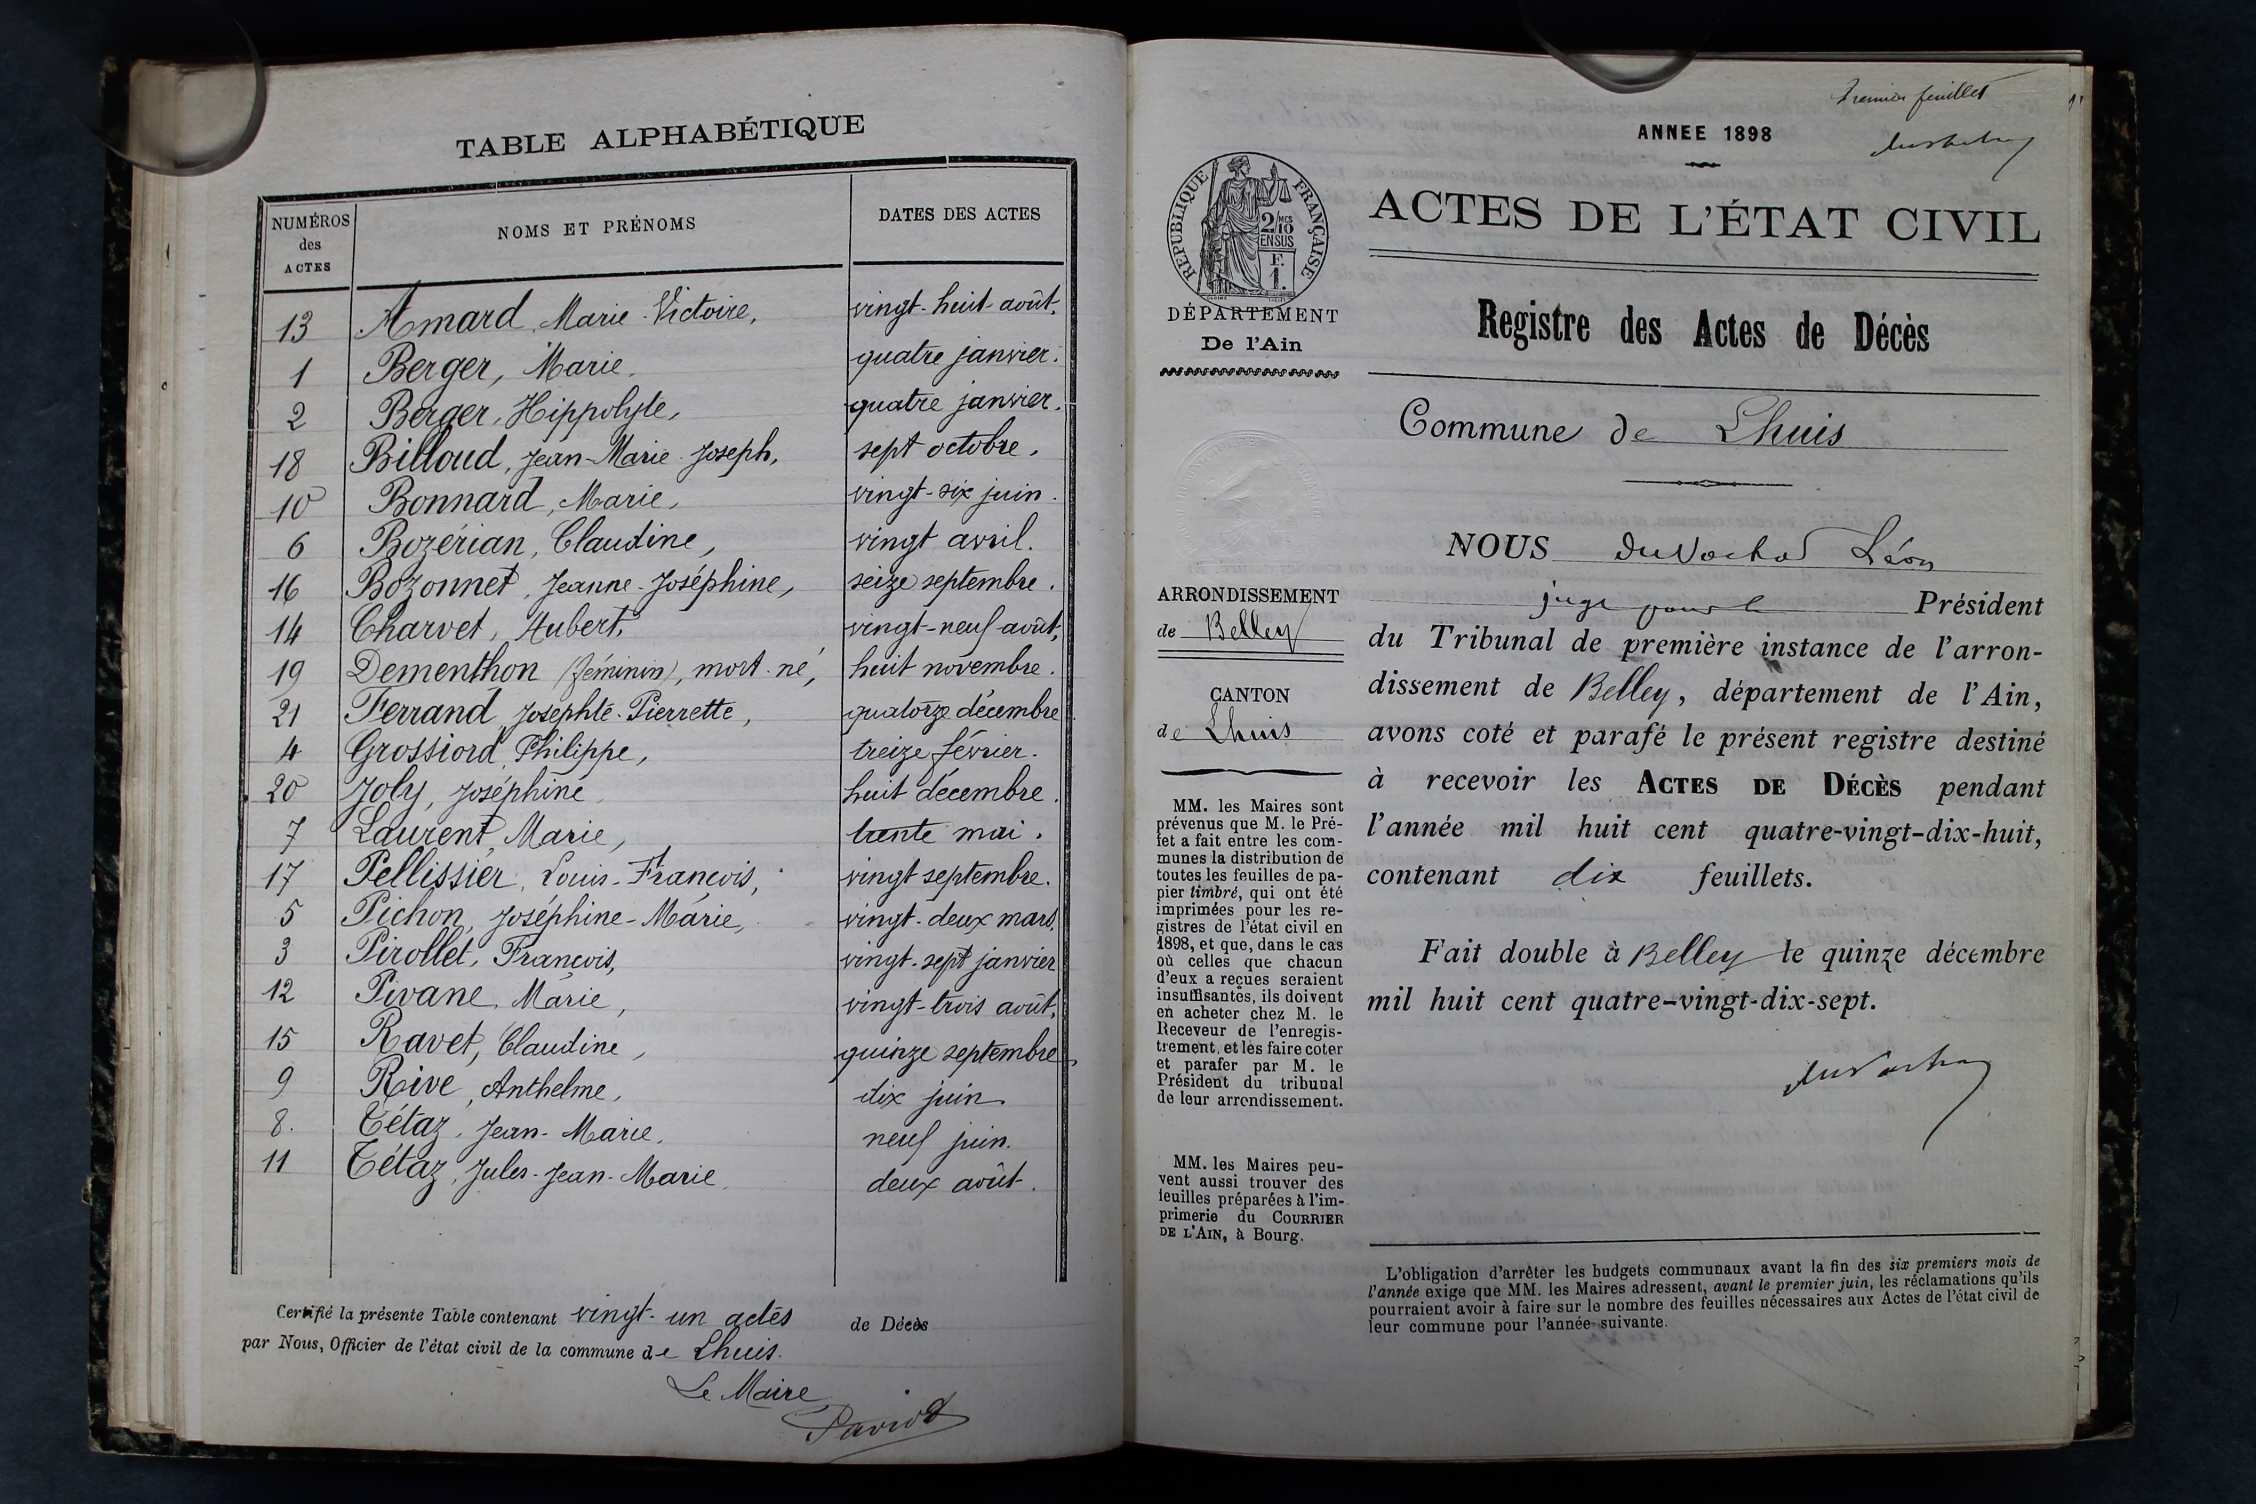 TABLE ALPHABÉTIQUE
NUMÉROS des ACTES NOMS ET PRÉNOMS DATES DES ACTES
13 Amard, Marie-Victoire, vingt-huit août.
1 Berger, Marie. quatre janvier.
2 Berger, Hippolyte, quatre janvier.
18 Billoud, Jean-Marie-Joseph, sept octobre.
10 Bonnard, Marie, vingt-six juin.
6 Bozérian, Claudine, vingt avril.
16 Bozonnet, Jeanne-Joséphine, seize septembre.
14 Charvet, Aubert, vingt-neuf août,
19 Dementhon (féminin), mort-né, huit novembre.
21 Ferrand, Joséphte-Pierrette, quatorze décembre
4 Grossiord, Philippe, treize février.
20 Joly, Joséphine, huit décembre.
7 Laurent, Marie, trente mai.
17 Pellissier, Louis-François, vingt septembre.
5 Pichon, Joséphine-Marie, vingt-deux mars.
3 Pirollet, François, vingt-sept janvier
12 Pivane, Marie, vingt-trois août.
15 Ravet, Claudine, quinze septembre,
9 Rive, Anthelme, dix juin.
8. Tétaz, Jean-Marie. neuf juin.
11 Tétaz, Jules-Jean-Marie. deux août.
Certifié la présente Table contenant vingt-un actes de Décès
par Nous, Officier de l'état civil de la commune de Lhuis.
Le Maire
Premier feuillet
ANNEE 1898
RÉPUBLIQUE FRANÇAISE
2/10 MES
EN SUS
F.
1.
DÉPARTEMENT
De l'Ain
ARRONDISSEMENT
de Belley
CANTON
de Lhuis
MM. les Maires sont
prévenus que M. le Pré-
fet a fait entre les com-
munes la distribution de
toutes les feuilles de pa-
pier timbré, qui ont été
imprimées pour les re-
gistres de l'état civil en
1898, et que, dans le cas
où celles que chacun
d'eux a reçues seraient
insuffisantes, ils doivent
en acheter chez M. le
Receveur de l'enregis-
trement, et les faire coter
et parafer par M. le
Président du tribunal
de leur arrondissement.
MM. les Maires peu-
vent aussi trouver des
feuilles préparées à l'im-
primerie du COURRIER
DE L'AIN, à Bourg.
ACTES DE L'ÉTAT CIVIL
Registre des Actes de Décès
Commune de Lhuis
NOUS Léon
juge pour le Président
du Tribunal de première instance de l'arron-
dissement de Belley, département de l'Ain,
avons coté et parafé le présent registre destiné
à recevoir les ACTES DE DÉCÈS pendant
l'année mil huit cent quatre-vingt-dix-huit,
contenant dix feuillets.
Fait double à Belley le quinze décembre
mil huit cent quatre-vingt-dix-sept.
L'obligation d'arrêter les budgets communaux avant la fin des six premiers mois de
l'année exige que MM. les Maires adressent, avant le premier juin, les réclamations qu'ils
pourraient avoir à faire sur le nombre des feuilles nécessaires aux Actes de l'état civil de
leur commune pour l'année suivante.